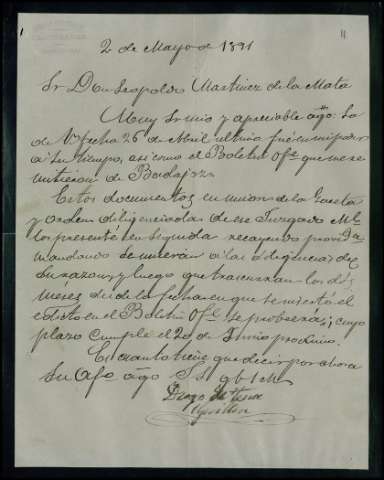 2 de Mayo de 1891
Sr Don Leopoldo Martinez de la Mata
Muy Sr mio y apreciable amgo: La
de V. fecha 26 de Abril ultimo fué en mi poder
a su tiempo, asi como el Boletin Ofl que me re
mitieron de Badajoz.
Estos documentos en union de la Gaceta
y orden diligenciada de ese Juzgado Ml
los presenté en seguida recayendo provida
mandando se unieran a las diligencias de
su razon, y luego que trascurran los dos
meses desde la fecha en que se insertó el
edicto en el Boletin Ofl se proveerá; cuyo
plazo cumple el 20 de Junio proximo.
Es cuanto tiene que decir por ahora
Su Afo amgo S. S. q b s M
Diego